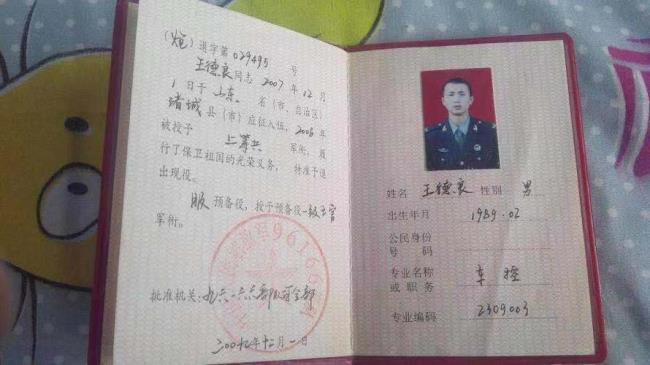 (炮)退字第029495号
王德良同志2007年12月
1日于山东省(市、自治区)
诸城县(市)应征入伍,2008年
被授予上等兵军衔,履
行了保卫祖国的光荣义务,特准予退
出现役。
服预备役,授予预备役一级士官
军衔。
批准机关:九六一六六部队司令部
二〇〇九年十二月一日
96166
姓名 王德良 性别 男
出生年月 1989.02
公民身份
号码
专业名称
或职务
专业编码 2309003